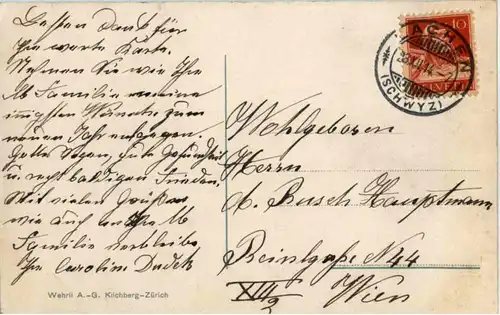 Besten Dank für
Ihre werte Karte.
Nehmen Sie wie Ihre
lb Familie meine
innigsten Wünsche zum
neuen Jahr entgegen.
Gottes Segen, gute Gesundheit
u. recht baldigen Frieden.
Mit vielen Grüßen
wie auch an Ihre lb
Familie verbleibe
Ihre Caroline
Wehrli A.-G. Kilchberg-Zürich
LACHEN
(SCHWYZ)
10
HELVETIA
Wohlgeboren
Herrn
A. Rusch Hauptmann
N 44
XIII/2
Wien